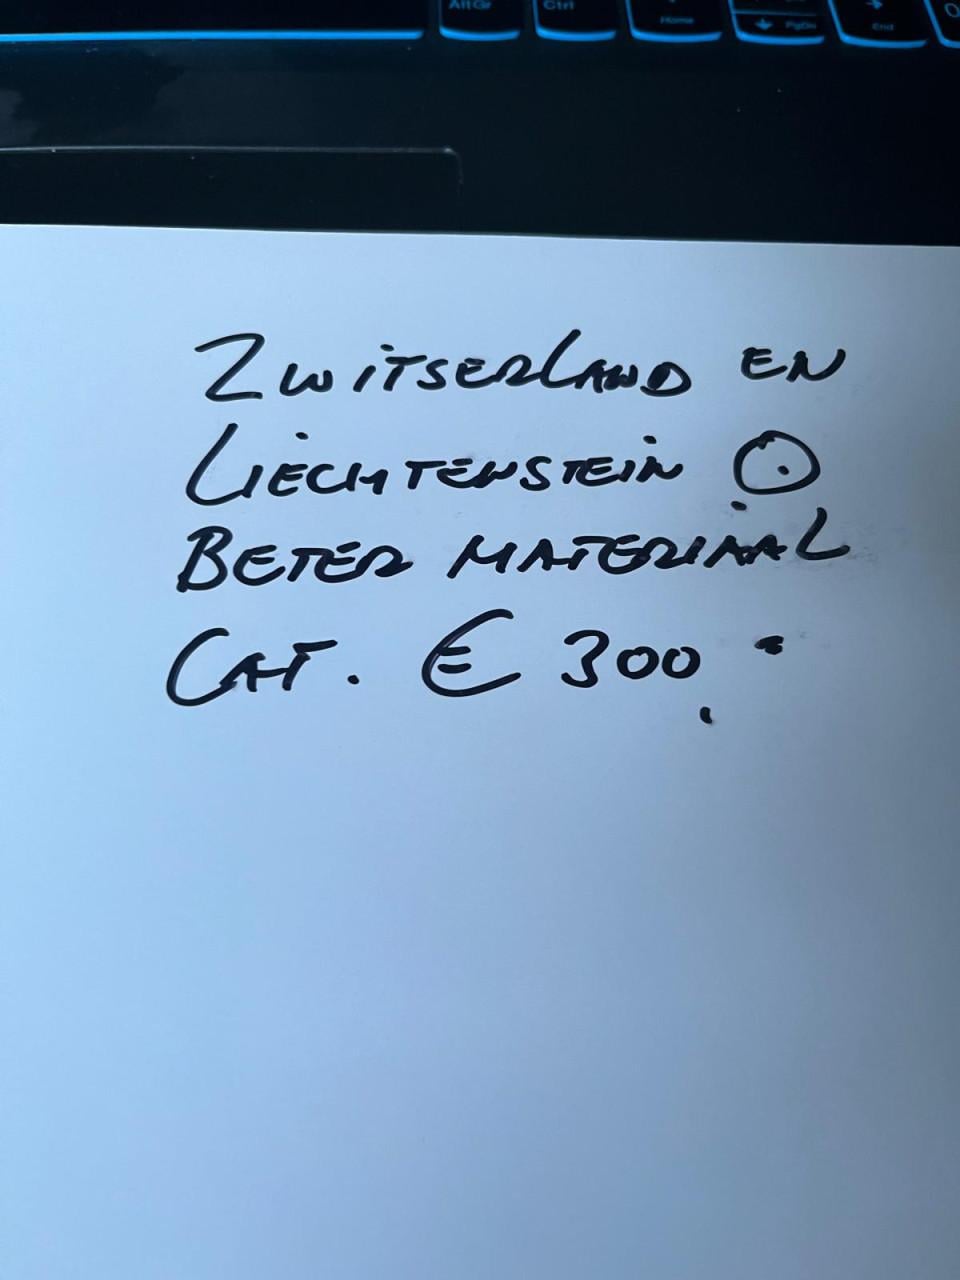 AltGr Ctrl Home PgDn End
ZWITSERLAND EN
LIECHTENSTEIN ⊙
BETER MATERIAAL
CAT. € 300.